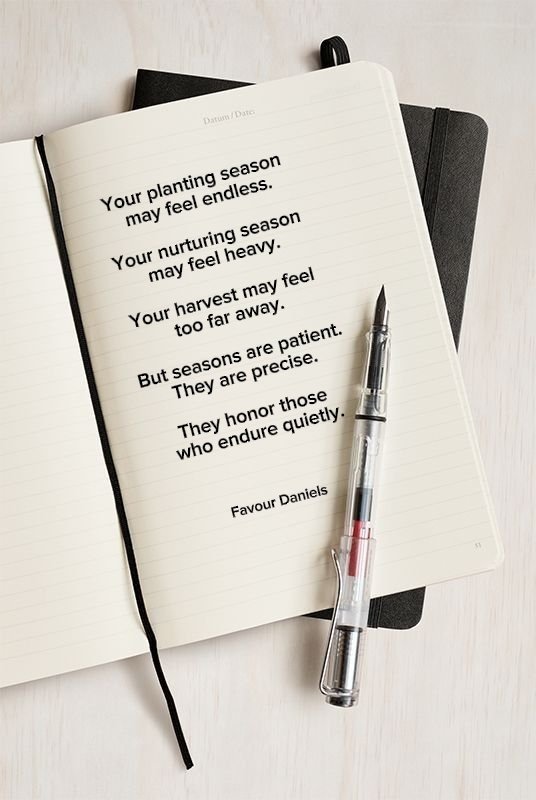 Datum / Date:
Your planting season
may feel endless.
Your nurturing season
may feel heavy.
Your harvest may feel
too far away.
But seasons are patient.
They are precise.
They honor those
who endure quietly.
Favour Daniels